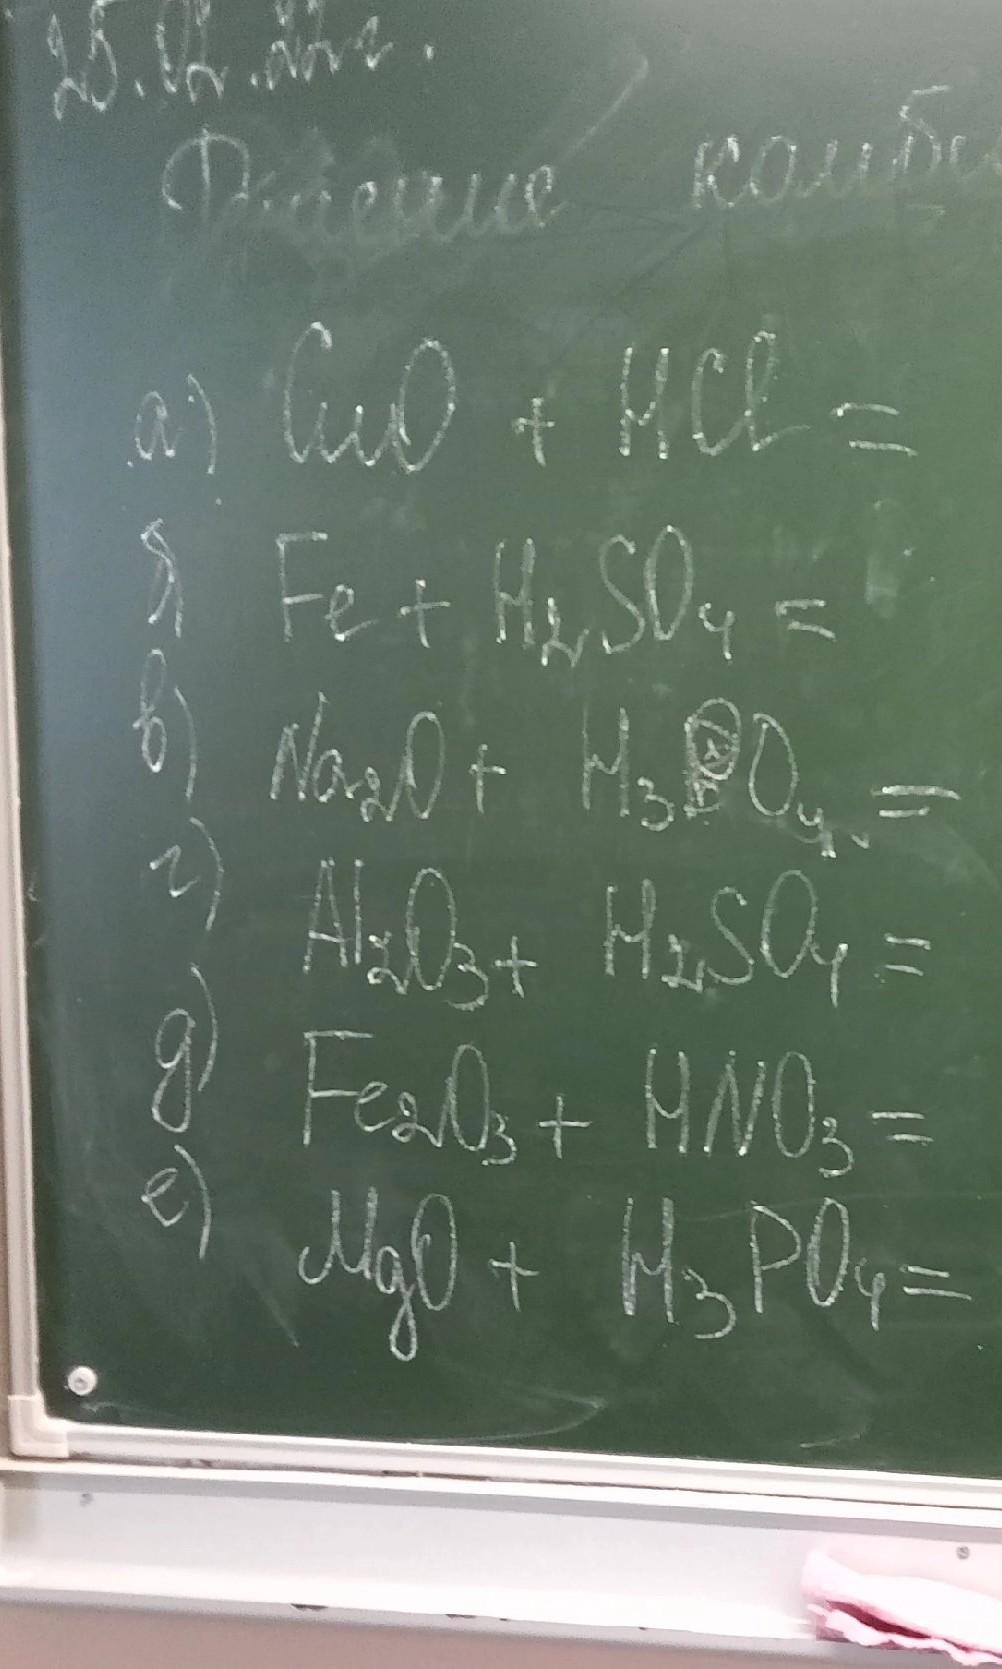 25.02.22г.
Решение комби
а) CuO + HCl =
б) Fe + H₂SO₄ =
в) Na₂O + H₃PO₄ =
г) Al₂O₃ + H₂SO₄ =
д) Fe₂O₃ + HNO₃ =
е) MgO + H₃PO₄ =